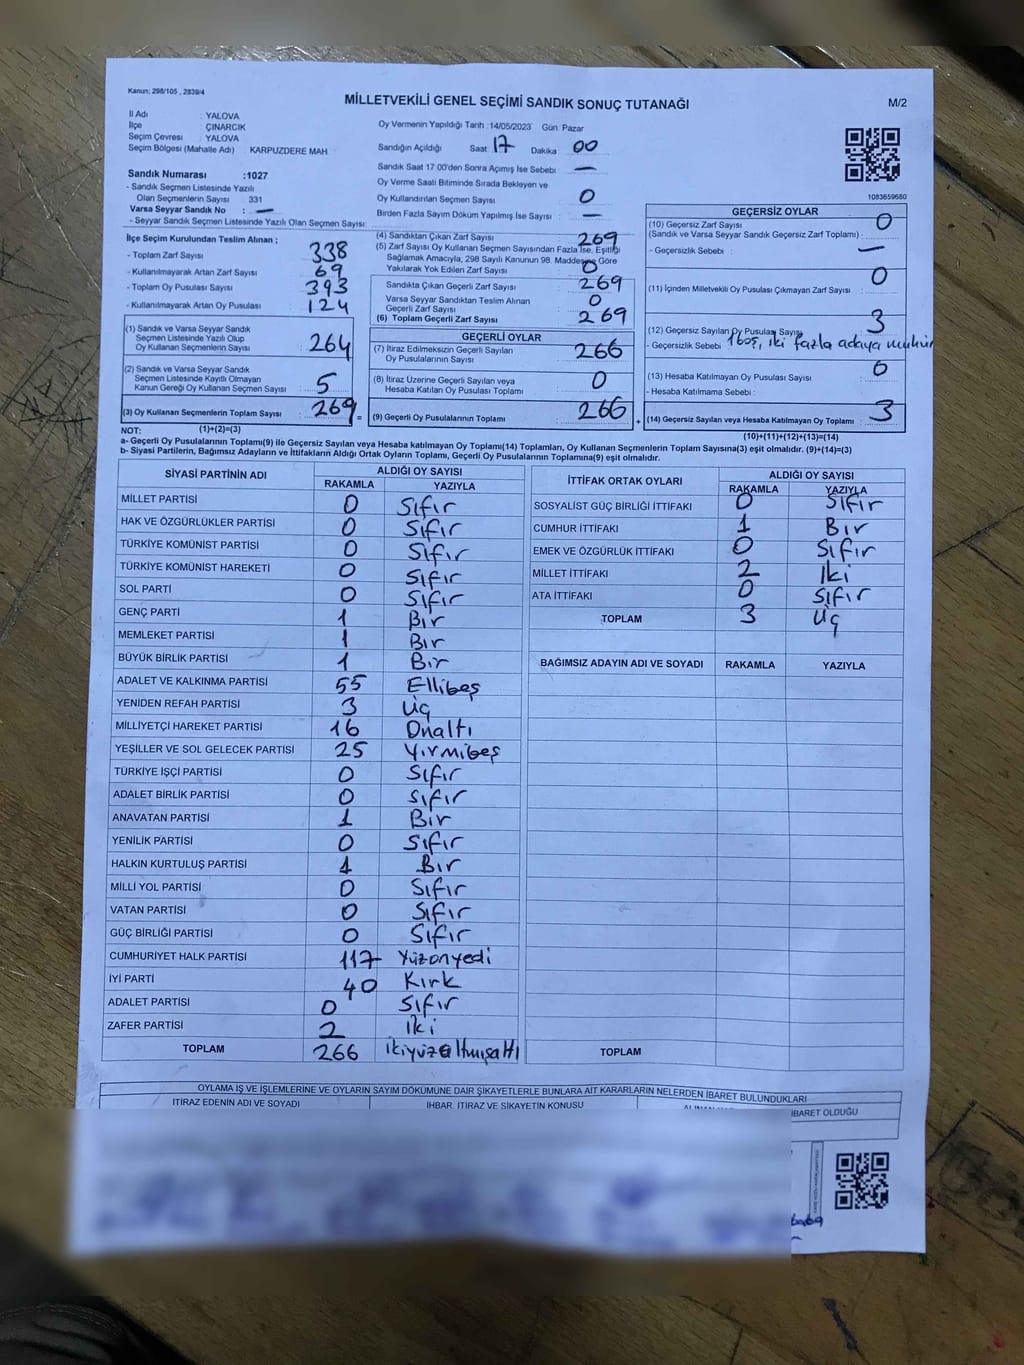 Kanun; 298/105 , 2839/4
MİLLETVEKİLİ GENEL SEÇİMİ SANDIK SONUÇ TUTANAĞI
M/2
İl Adı : YALOVA
İlçe ÇINARCIK
Seçim Çevresi : YALOVA
Seçim Bölgesi (Mahalle Adı) KARPUZDERE MAH
Sandık Numarası :1027
- Sandık Seçmen Listesinde Yazılı
Olan Seçmenlerin Sayısı : 331
Varsa Seyyar Sandık No : —
- Seyyar Sandık Seçmen Listesinde Yazılı Olan Seçmen Sayısı:
Oy Vermenin Yapıldığı Tarih :14/05/2023 Gün: Pazar
Sandığın Açıldığı Saat 17 Dakika 00
Sandık Saat 17.00'den Sonra Açılmış İse Sebebi —
Oy Verme Saati Bitiminde Sırada Bekleyen ve
Oy Kullandırılan Seçmen Sayısı 0
Birden Fazla Sayım Döküm Yapılmış İse Sayısı —
1083659680
İlçe Seçim Kurulundan Teslim Alınan ;
- Toplam Zarf Sayısı : 338
- Kullanılmayarak Artan Zarf Sayısı : 69
- Toplam Oy Pusulası Sayısı : 393
- Kullanılmayarak Artan Oy Pusulası : 124
(1) Sandık ve Varsa Seyyar Sandık
Seçmen Listesinde Yazılı Olup
Oy Kullanan Seçmenlerin Sayısı : 264
(2) Sandık ve Varsa Seyyar Sandık
Seçmen Listesinde Kayıtlı Olmayan
Kanun Gereği Oy Kullanan Seçmen Sayısı : 5
(3) Oy Kullanan Seçmenlerin Toplam Sayısı : 269 =
(4) Sandıktan Çıkan Zarf Sayısı : 269
(5) Zarf Sayısı Oy Kullanan Seçmen Sayısından Fazla İse, Eşitliği
Sağlamak Amacıyla, 298 Sayılı Kanunun 98. Maddesine Göre
Yakılarak Yok Edilen Zarf Sayısı : 0
Sandıkta Çıkan Geçerli Zarf Sayısı : 269
Varsa Seyyar Sandıktan Teslim Alınan
Geçerli Zarf Sayısı : 0
(6) Toplam Geçerli Zarf Sayısı : 269
GEÇERLİ OYLAR
(7) İtiraz Edilmeksizin Geçerli Sayılan
Oy Pusulalarının Sayısı : 266
(8) İtiraz Üzerine Geçerli Sayılan veya
Hesaba Katılan Oy Pusulası Toplamı : 0
(9) Geçerli Oy Pusulalarının Toplamı : 266 +
GEÇERSİZ OYLAR
(10) Geçersiz Zarf Sayısı
(Sandık ve Varsa Seyyar Sandık Geçersiz Zarf Toplamı) : 0
- Geçersizlik Sebebi : —
(11) İçinden Milletvekili Oy Pusulası Çıkmayan Zarf Sayısı : 0
(12) Geçersiz Sayılan Oy Pusulası Sayısı 3
- Geçersizlik Sebebi iki fazla adaya mühür
(13) Hesaba Katılmayan Oy Pusulası Sayısı : 0
- Hesaba Katılmama Sebebi :
(14) Geçersiz Sayılan veya Hesaba Katılmayan Oy Toplamı : 3
NOT: (1)+(2)=(3)
(10)+(11)+(12)+(13)=(14)
a- Geçerli Oy Pusulalarının Toplamı(9) ile Geçersiz Sayılan veya Hesaba katılmayan Oy Toplamı(14) Toplamları, Oy Kullanan Seçmenlerin Toplam Sayısına(3) eşit olmalıdır. (9)+(14)=(3)
b- Siyasi Partilerin, Bağımsız Adayların ve İttifakların Aldığı Ortak Oyların Toplamı, Geçerli Oy Pusulalarının Toplamına(9) eşit olmalıdır.
SİYASİ PARTİNİN ADI ALDIĞI OY SAYISI
RAKAMLA YAZIYLA
MİLLET PARTİSİ 0 Sıfır
HAK VE ÖZGÜRLÜKLER PARTİSİ 0 Sıfır
TÜRKİYE KOMÜNİST PARTİSİ 0 Sıfır
TÜRKİYE KOMÜNİST HAREKETİ 0 Sıfır
SOL PARTİ 0 Sıfır
GENÇ PARTİ 1 Bir
MEMLEKET PARTİSİ 1 Bir
BÜYÜK BİRLİK PARTİSİ 1 Bir
ADALET VE KALKINMA PARTİSİ 55 Ellibeş
YENİDEN REFAH PARTİSİ 3 Üç
MİLLİYETÇİ HAREKET PARTİSİ 16 Onaltı
YEŞİLLER VE SOL GELECEK PARTİSİ 25 Yirmibeş
TÜRKİYE İŞÇİ PARTİSİ 0 Sıfır
ADALET BİRLİK PARTİSİ 0 Sıfır
ANAVATAN PARTİSİ 1 Bir
YENİLİK PARTİSİ 0 Sıfır
HALKIN KURTULUŞ PARTİSİ 1 Bir
MİLLİ YOL PARTİSİ 0 Sıfır
VATAN PARTİSİ 0 Sıfır
GÜÇ BİRLİĞİ PARTİSİ 0 Sıfır
CUMHURİYET HALK PARTİSİ 117 Yüzonyedi
İYİ PARTİ 40 Kırk
ADALET PARTİSİ 0 Sıfır
ZAFER PARTİSİ 2 İki
TOPLAM 266 ikiyüzaltmışaltı
İTTİFAK ORTAK OYLARI ALDIĞI OY SAYISI
RAKAMLA YAZIYLA
SOSYALİST GÜÇ BİRLİĞİ İTTİFAKI 0 Sıfır
CUMHUR İTTİFAKI 1 Bir
EMEK VE ÖZGÜRLÜK İTTİFAKI 0 Sıfır
MİLLET İTTİFAKI 2 İki
ATA İTTİFAKI 0 Sıfır
TOPLAM 3 Üç
BAĞIMSIZ ADAYIN ADI VE SOYADI RAKAMLA YAZIYLA
TOPLAM
OYLAMA İŞ VE İŞLEMLERİNE VE OYLARIN SAYIM DÖKÜMÜNE DAİR ŞİKAYETLERLE BUNLARA AİT KARARLARIN NELERDEN İBARET BULUNDUKLARI
İTİRAZ EDENİN ADI VE SOYADI İHBAR, İTİRAZ VE ŞİKAYETİN KONUSU İBARET OLDUĞU